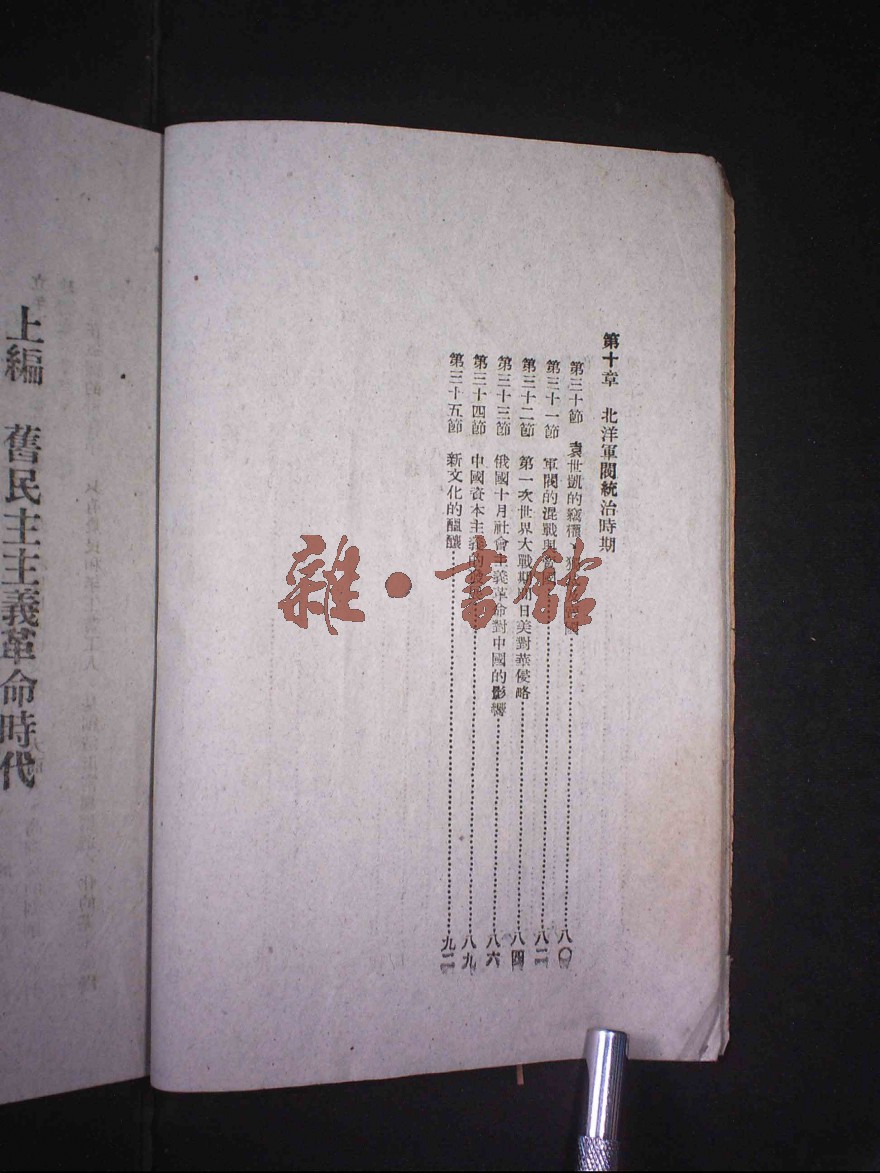 第十章 北洋軍閥統治時期
第三十節 袁世凱的竊權、 國……八〇
第三十一節 軍閥的混戰與 ……八二
第三十二節 第一次世界大戰期間日美對華侵略……八四
第三十三節 俄國十月社會主義革命對中國的影響……八六
第三十四節 中國資本主義的發 ……八九
第三十五節 新文化的醞釀……九二
上編 舊民主主義革命時代
雜·書館